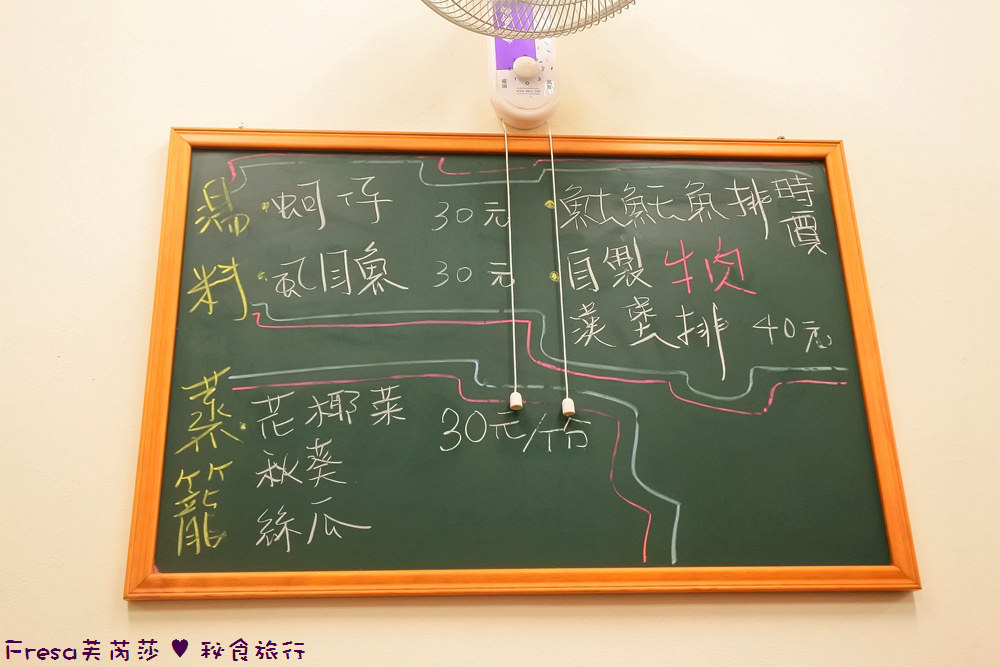 湯料
蚵仔 30元
虱目魚 30元
魠魠魚排 時價
自製牛肉
漢堡排 40元
蒸籠
花椰菜 30元/份
秋葵
絲瓜
Fresa芙芮莎 ♥ 秘食旅行